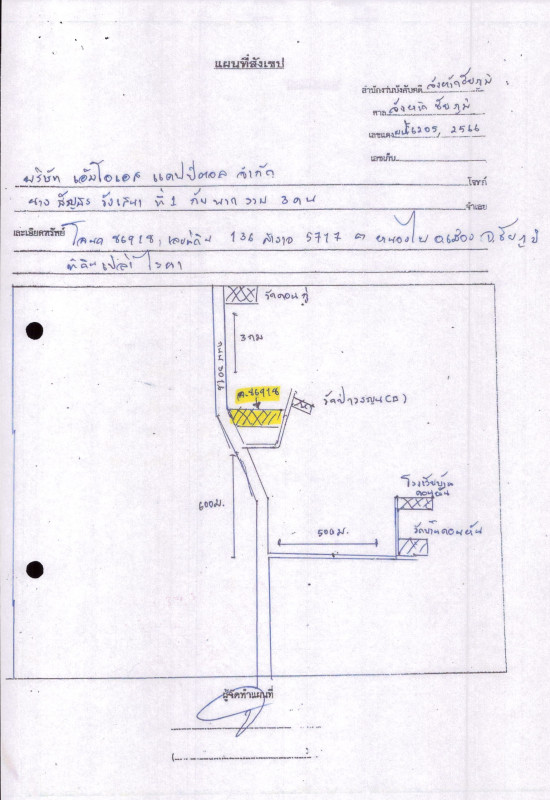 แผนที่สังเขป
สำนักงานบังคับคดี จังหวัดชัยภูมิ
ศาล จังหวัด ชัยภูมิ
เลขแดง ผบE1205, 2566
เลขเก็บ
บริษัท เอ็มโอเอส แคปปิตอล จำกัด โจทก์
นาง ที่ 1 กับพวก รวม 3 คน จำเลย
และเอียดทรัพย์ โฉนด ๘6918, เลขที่ดิน 136 สำรวจ 5717 ต. หนองไผ่ อ.เมือง จ.ชัยภูมิ
ที่ดินเปล่า
วัดดอนกู่
3 กม
ถนน 2051
ฉ.๘6918
วัดป่า
โรงเรียนบ้าน
ดอนหัน
600ม.
500ม.
วัดบ้านดอนหัน
ผู้จัดทำแผนที่